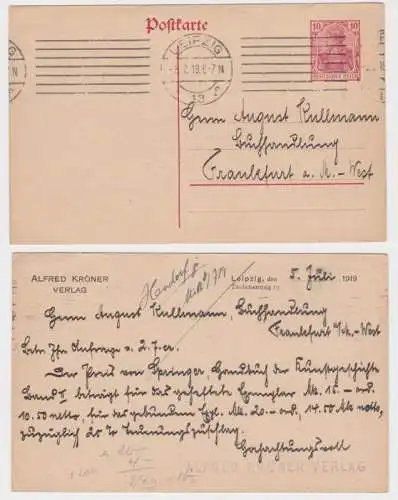 Postkarte
LEIPZIG
-5.7.19.6-7N
10
DEUTSCHES REICH
Herrn August Kullmann
Buchhandlung
Frankfurt a. M.-West
ALFRED KRÖNER
VERLAG
Leipzig, den 5. Juli 1919
Herrn August Kullmann, Buchhandlung
Frankfurt a/M.-West
Betr. Ihr Anfrage v. 2. 7. cr.
Der Preis von Springer, Handbuch der Kunstgeschichte
Band II beträgt für das geheftete Exemplar Mk. 15.- ord.
10.50 netto, für das gebundene Expl. Mk. 20.- ord., 14.00 Mk netto,
zuzüglich 25 % Teuerungszuschlag.
Hochachtungsvoll
ALFRED KRÖNER VERLAG